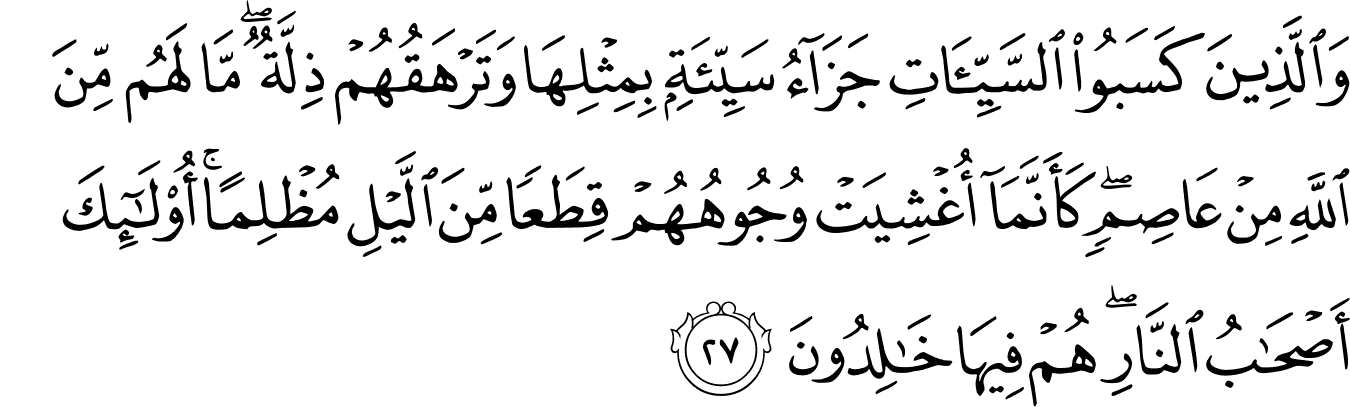 وَٱلَّذِينَ كَسَبُوا۟ ٱلسَّيِّـَٔاتِ جَزَآءُ سَيِّئَةٍۭ بِمِثْلِهَا وَتَرْهَقُهُمْ ذِلَّةٌۖ مَّا لَهُم مِّنَ
ٱللَّهِ مِنْ عَاصِمٍۖ كَأَنَّمَآ أُغْشِيَتْ وُجُوهُهُمْ قِطَعًا مِّنَ ٱلَّيْلِ مُظْلِمًاۚ أُو۟لَـٰٓئِكَ
أَصْحَـٰبُ ٱلنَّارِۖ هُمْ فِيهَا خَـٰلِدُونَ ٢٧